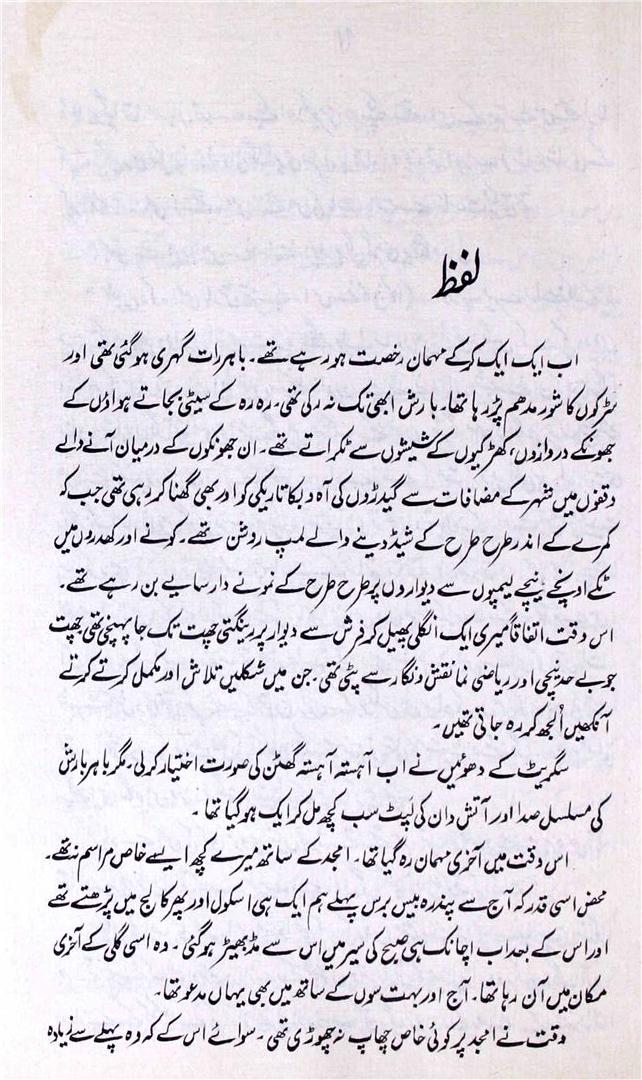 لفظ
اب ایک ایک کرکے مہمان رخصت ہو رہے تھے۔ باہر رات گہری ہوگئی تھی اور
سڑکوں کا شور مدھم پڑ رہا تھا۔ بارش ابھی تک نہ رکی تھی۔ رہ رہ کے سیٹی بجاتے ہواؤں کے
جھونکے دروازوں، کھڑکیوں کے شیشوں سے ٹکراتے تھے۔ ان جھونکوں کے درمیان آنے والے
وقفوں میں شہر کے مضافات سے گیدڑوں کی آہ و بکا تاریکی کو اور بھی گھنا کر رہی تھی جب کہ
کمرے کے اندر طرح طرح کے شیڈ دینے والے لمپ روشن تھے۔ کونے اور کھدروں میں
ٹکے اونچے نیچے لیمپوں سے دیواروں پر طرح طرح کے نمونے دار سایے بن رہے تھے۔
اس وقت اتفاقاً میری ایک انگلی پھیل کر فرش سے دیوار پر رینگتی چھت تک جا پہنچی تھی چھت
جو بے حد نیچی اور ریاضی نما نقش و نگار سے پٹی تھی۔ جن میں شکلیں تلاش اور مکمل کرتے کرتے
آنکھیں اُلجھ کر رہ جاتی تھیں۔
سگریٹ کے دھوئیں نے اب آہستہ آہستہ گھٹن کی صورت اختیار کرلی۔ مگر باہر بارش
کی مسلسل صدا اور آتش دان کی لپٹ سب کچھ مل کر ایک ہوگیا تھا۔
اس وقت میں آخری مہمان رہ گیا تھا۔ امجد کے ساتھ میرے کچھ ایسے خاص مراسم نہ تھے۔
محض اسی قدر کہ آج سے پندرہ بیس برس پہلے ہم ایک ہی اسکول اور پھر کالج میں پڑھتے تھے
اور اس کے بعد اب اچانک ہی صبح کی سیر میں اس سے مڈبھیڑ ہوگئی۔ وہ اسی گلی کے آخری
مکان میں آن رہا تھا۔ آج اور بہت سوں کے ساتھ میں بھی یہاں مدعو تھا۔
وقت نے امجد پر کوئی خاص چھاپ نہ چھوڑی تھی۔ سوائے اس کے کہ وہ پہلے سے زیادہ